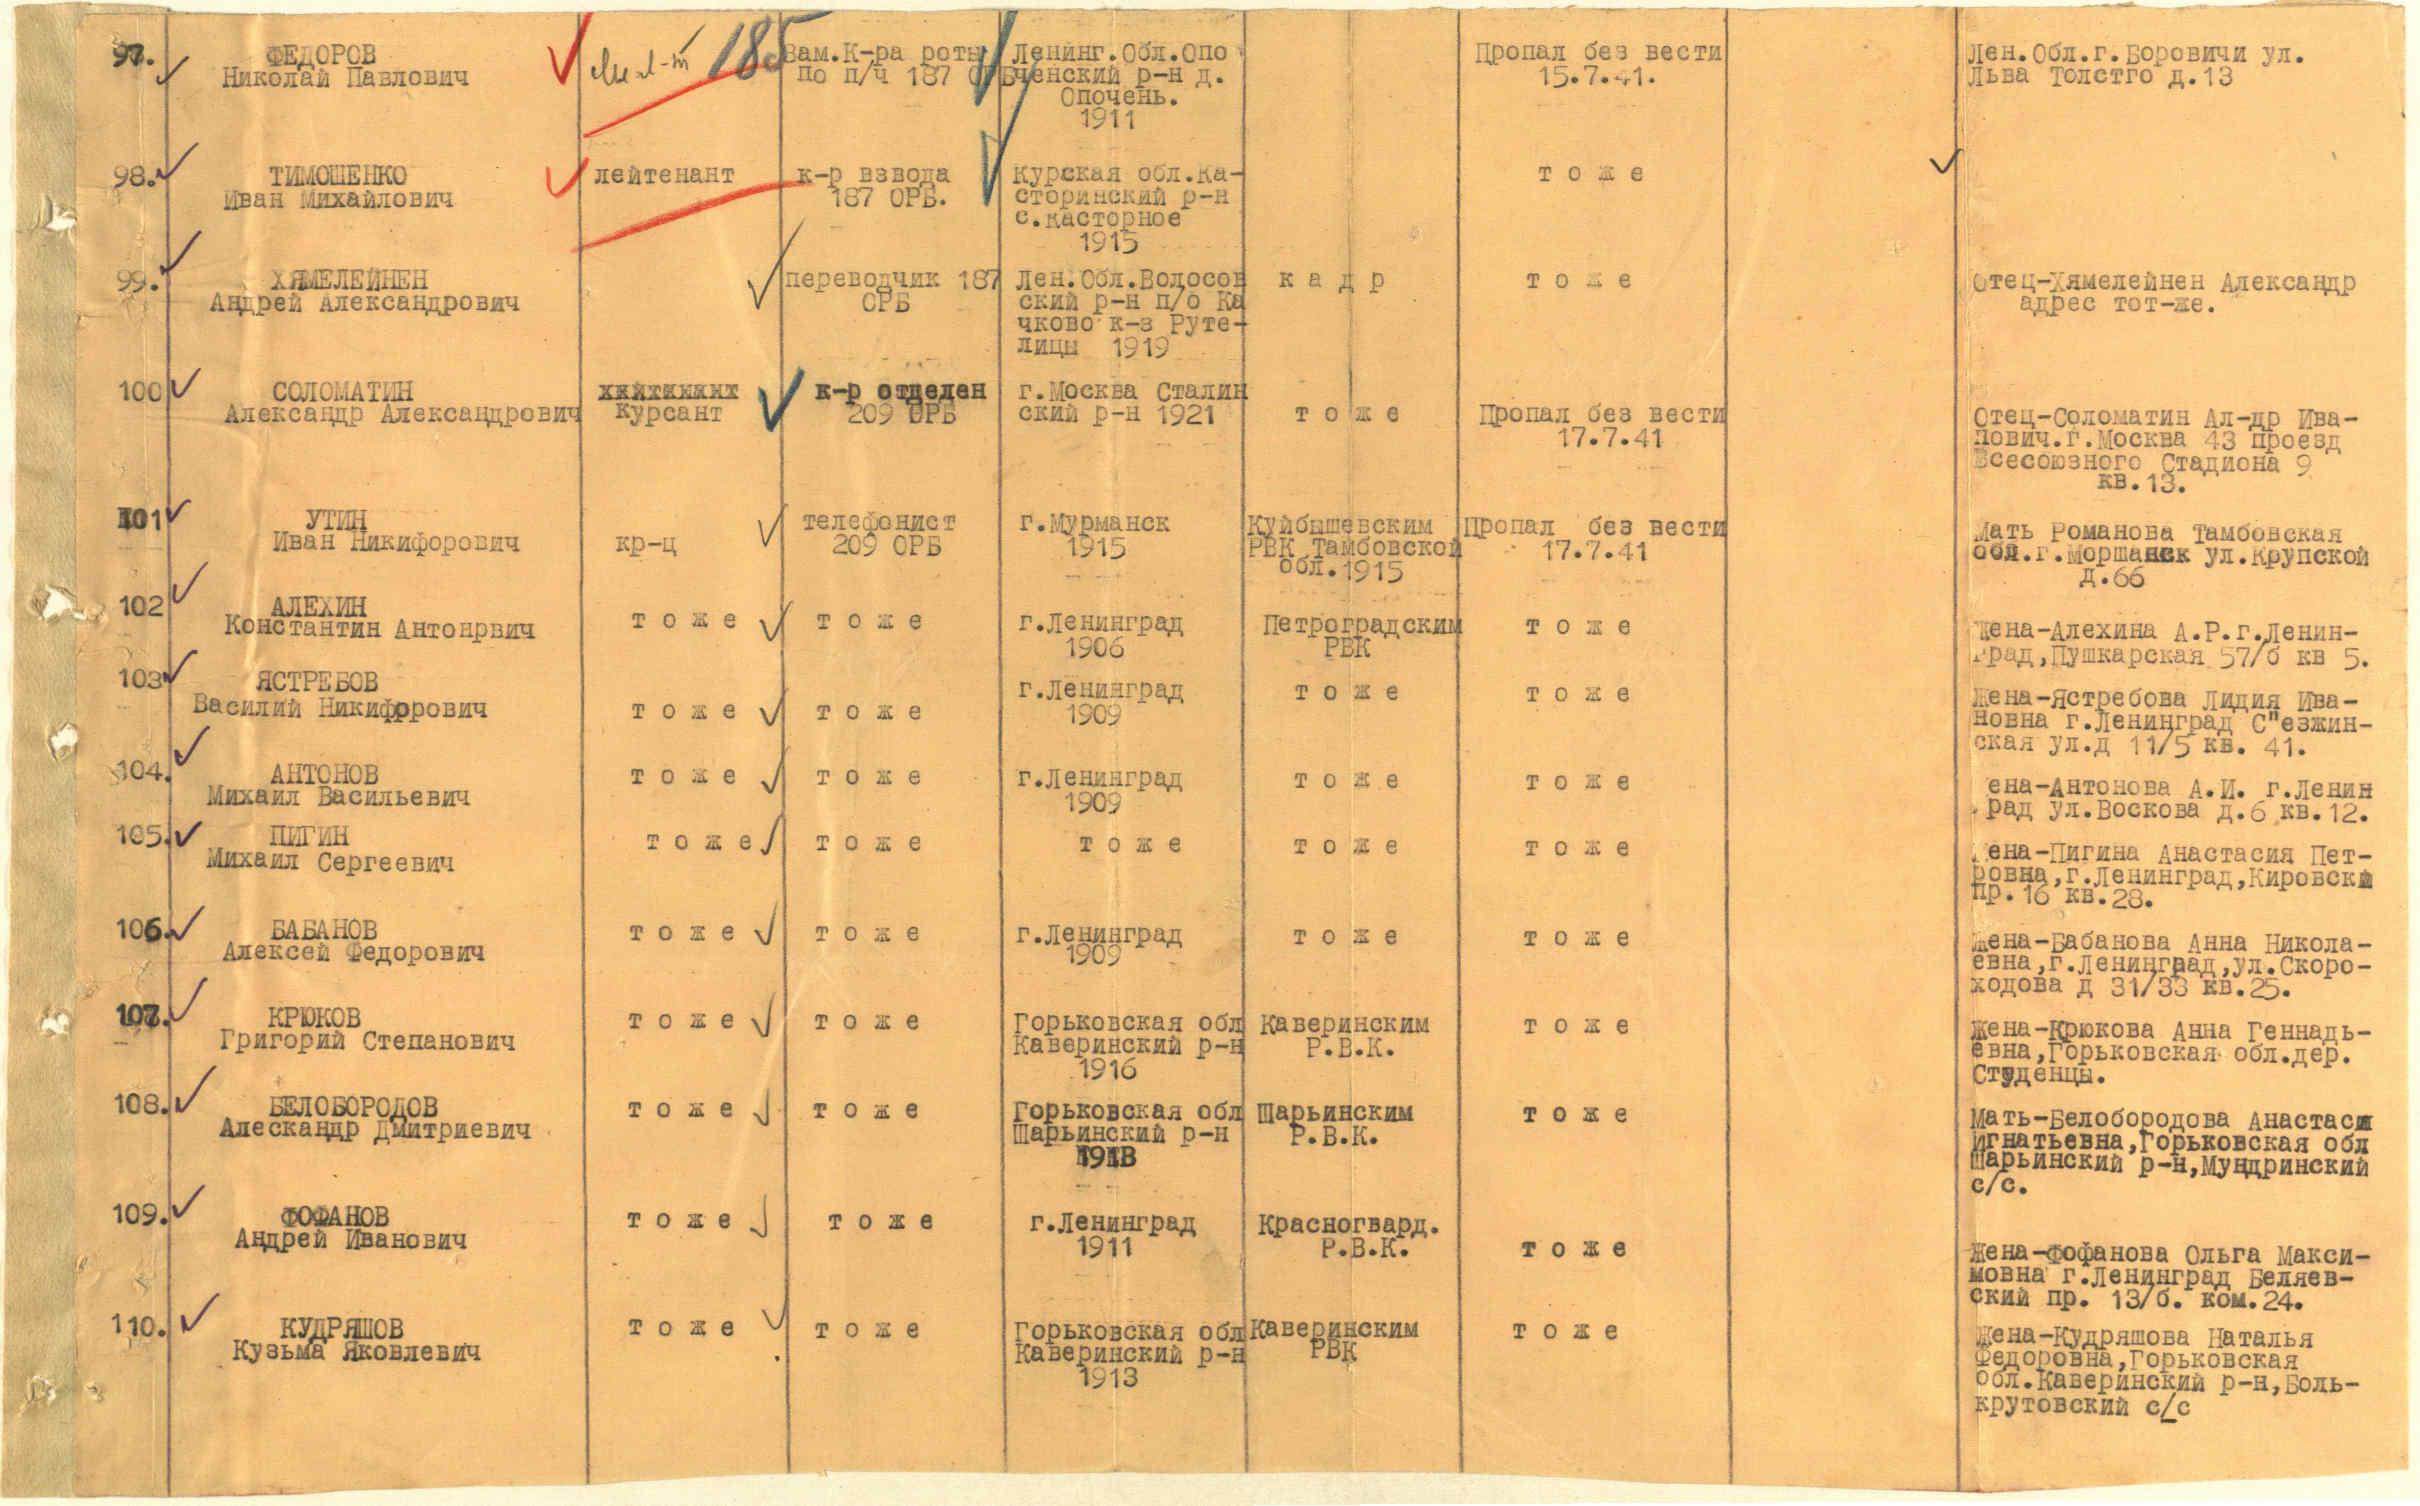 97.
ФЕДОРОВ
Николай Павлович
185
Зам.К-ра роты
по п/ч 187
Ленинг.Обл.Опо
ченский р-н д.
Опочень.
1911
Пропал без вести
15.7.41.
Лен.Обл.г.Боровичи ул.
Льва Толстго д.13
98.
ТИМОШЕНКО
Иван Михайлович
лейтенант
к-р взвода
187 ОРБ.
Курская обл.Ка-
сторинский р-н
с.Касторное
1915
тоже
99.
ХЯМЕЛЕЙНЕН
Андрей Александрович
переводчик 187
ОРБ
Лен.Обл.Волосов
ский р-н п/о Ка
чково к-з Руте-
лицы 1919
кадр
тоже
Отец-Хямелейнен Александр
адрес тот-же.
100
СОЛОМАТИН
Александр Александрович
курсант
к-р отделен
209 ОРБ
г.Москва Сталин
ский р-н 1921
тоже
Пропал без вести
17.7.41
Отец-Соломатин Ал-др Ива-
нович.г.Москва 43 проезд
Всесоюзного Стадиона 9
кв.13.
101
УТИН
Иван Никифорович
кр-ц
телефонист
209 ОРБ
г.Мурманск
1915
Куйбышевским
РВК Тамбовской
обл.1915
Пропал без вести
17.7.41
Мать Романова Тамбовская
обл.г.Моршанск ул.Крупской
д.66
102
АЛЕХИН
Константин Антонрвич
тоже
тоже
г.Ленинград
1906
Петроградским
РВК
тоже
Жена-Алехина А.Р.г.Ленин-
град,Пушкарская 57/б кв 5.
103
ЯСТРЕБОВ
Василий Никифорович
тоже
тоже
г.Ленинград
1909
тоже
тоже
Жена-Ястребова Лидия Ива-
новна г.Ленинград С"езжин-
ская ул.д 11/5 кв. 41.
104.
АНТОНОВ
Михаил Васильевич
тоже
тоже
г.Ленинград
1909
тоже
тоже
ена-Антонова А.И. г.Ленин
рад ул.Воскова д.6 кв.12.
105.
ПИГИН
Михаил Сергеевич
тоже
тоже
тоже
тоже
тоже
Жена-Пигина Анастасия Пет-
ровна,г.Ленинград,Кировски
пр.16 кв.28.
106.
БАБАНОВ
Алексей Федорович
тоже
тоже
г.Ленинград
1909
тоже
тоже
Жена-Бабанова Анна Никола-
евна,г.Ленинград,ул.Скоро-
ходова д 31/33 кв.25.
107.
КРЮКОВ
Григорий Степанович
тоже
тоже
Горьковская обл
Каверинский р-н
1916
Каверинским
Р.В.К.
тоже
Жена-Крюкова Анна Геннадь-
евна,Горьковская обл.дер.
Студенцы.
108.
БЕЛОБОРОДОВ
Алескандр Дмитриевич
тоже
тоже
Горьковская обл
Шарьинский р-н
Шарьинским
Р.В.К.
тоже
Мать-Белобородова Анастаси
Игнатьевна,Горьковская обл
Шарьинский р-н,Мундринский
с/с.
109.
ФОФАНОВ
Андрей Иванович
тоже
тоже
г.Ленинград
1911
Красногвард.
Р.В.К.
тоже
Жена-Фофанова Ольга Макси-
мовна г.Ленинград Беляев-
ский пр. 13/б. ком.24.
110.
КУДРЯШОВ
Кузьма Яковлевич
тоже
тоже
Горьковская обл
Каверинский р-н
1913
Каверинским
РВК
тоже
Жена-Кудряшова Наталья
Федоровна,Горьковская
обл.Каверинский р-н,Боль-
крутовский с/с